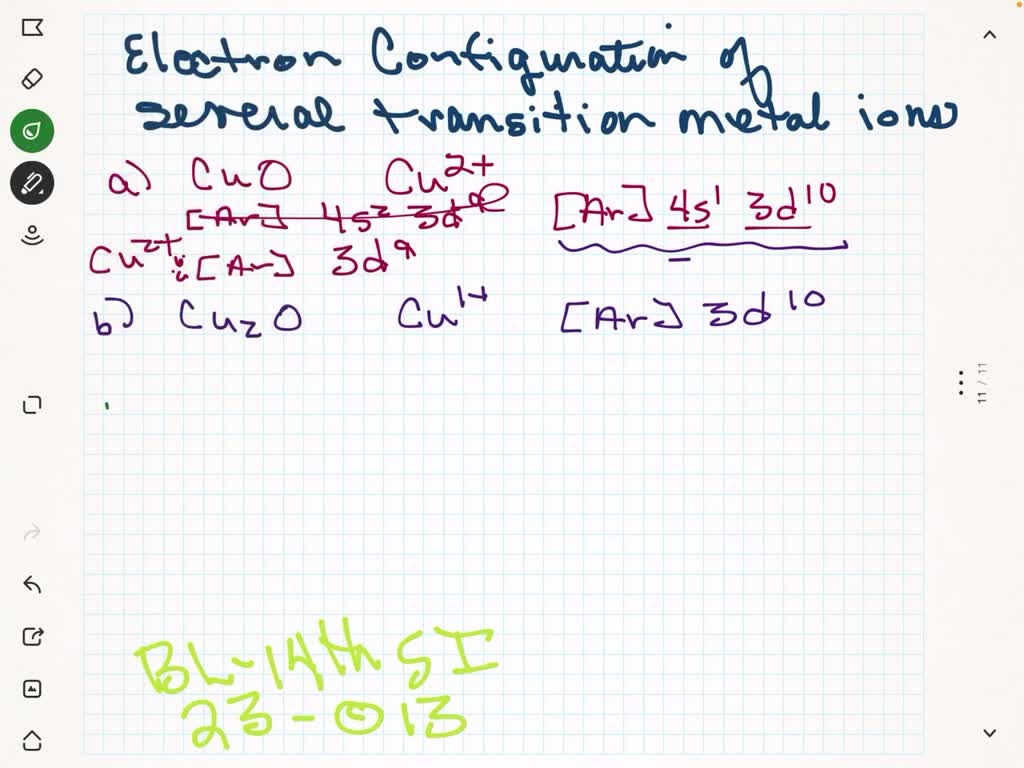 Electron Configuration of
several transition metal ions
a) CuO Cu²⁺ [Ar] 4s¹ 3d¹⁰
[Ar] 4s² 3d⁹
Cu²⁺: [Ar] 3d⁹
b) Cu₂O Cu¹⁺ [Ar] 3d¹⁰
11 / 11
BL-14th SI
23-013